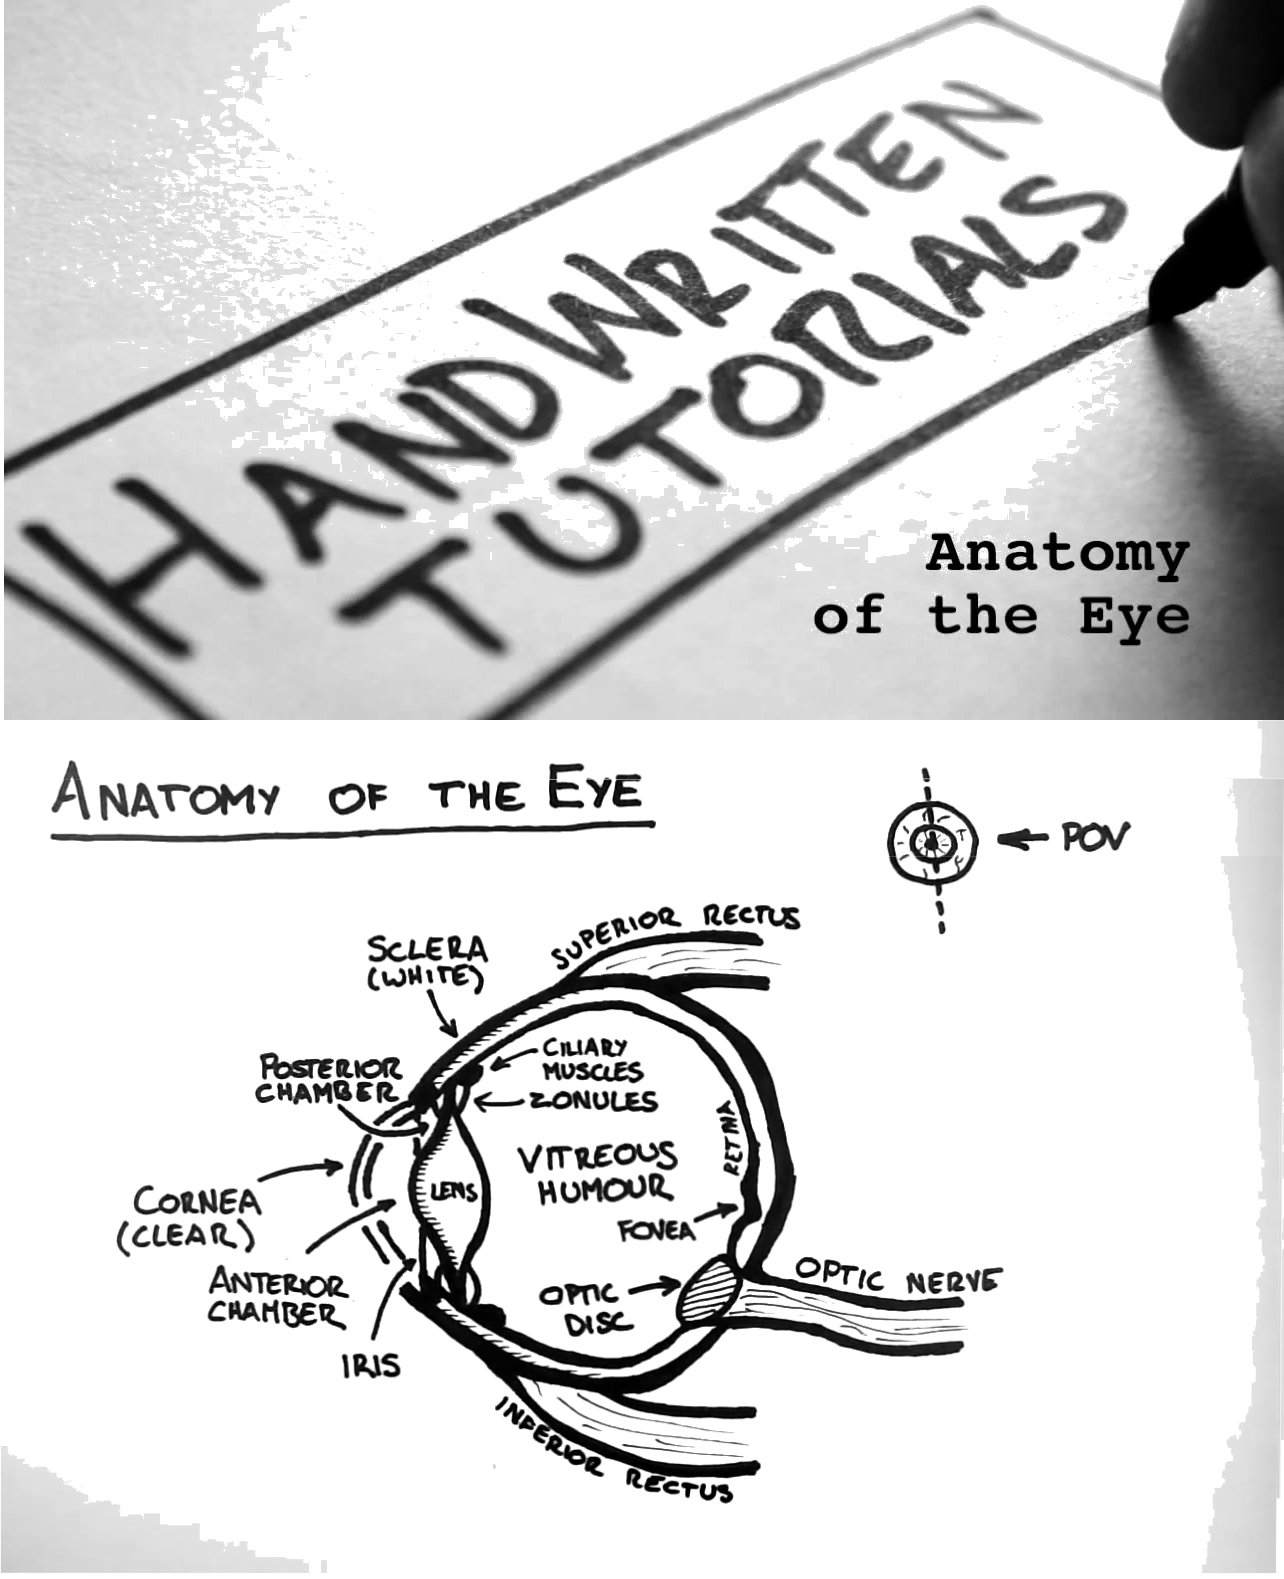 HANDWRITTEN
TUTORIALS
Anatomy
of the Eye
ANATOMY OF THE EYE
POV
SUPERIOR RECTUS
SCLERA
(WHITE)
CILIARY
MUSCLES
POSTERIOR
CHAMBER
ZONULES
RETINA
VITREOUS
HUMOUR
LENS
CORNEA
(CLEAR)
FOVEA
ANTERIOR
CHAMBER
OPTIC NERVE
OPTIC
DISC
IRIS
INFERIOR RECTUS